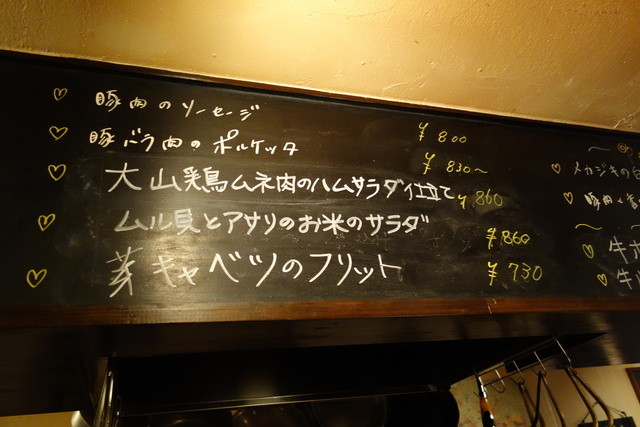 豚肉のソーセージ ¥800
豚バラ肉のポルケッタ ¥830〜
大山鶏ムネ肉のハムサラダ仕立て ¥860
ムル貝とアサリのお米のサラダ ¥860
芽キャベツのフリット ¥730
メカジキの
豚肉
牛
牛